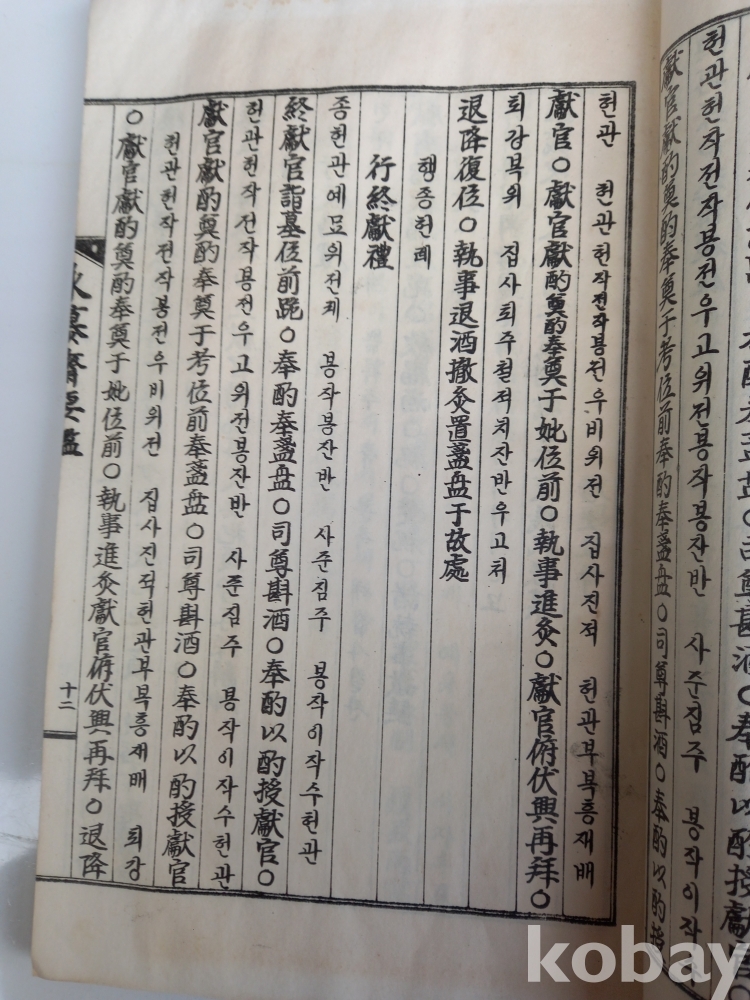 헌관헌작전작봉전우고위전봉작봉잔반 사준침주 봉작이작
獻官獻酌奠酌奉奠于考位前奉酌奉盞盘○司尊斟酒○奉酌以酌授
헌관 헌관헌작전작봉전우비위전 집사진적 헌관부복흥재배
獻官○獻官獻酌奠酌奉奠于妣位前○執事進炙○獻官俯伏興再拜○
퇴강복위 집사퇴주철적치잔반우고처
退降復位○執事退酒撤炙置盞盘于故處
행종헌례
行終獻禮
종헌관예묘위전궤 봉작봉잔반 사준짐주 봉작이작수헌관
終獻官詣墓位前跪○奉酌奉盞盘○司尊斟酒○奉酌以酌授獻官○
헌관헌작전작봉전우고위전봉잔반 사준짐주 봉작이작수헌관
獻官獻酌奠酌奉奠于考位前奉盞盘○司尊斟酒○奉酌以酌授獻官
헌관헌작전작봉전우비위전 집사진적헌관부복흥재배 퇴강
○獻官獻酌奠酌奉奠于妣位前○執事進炙獻官俯伏興再拜○退降
慕齋要鑑
十二
kobay